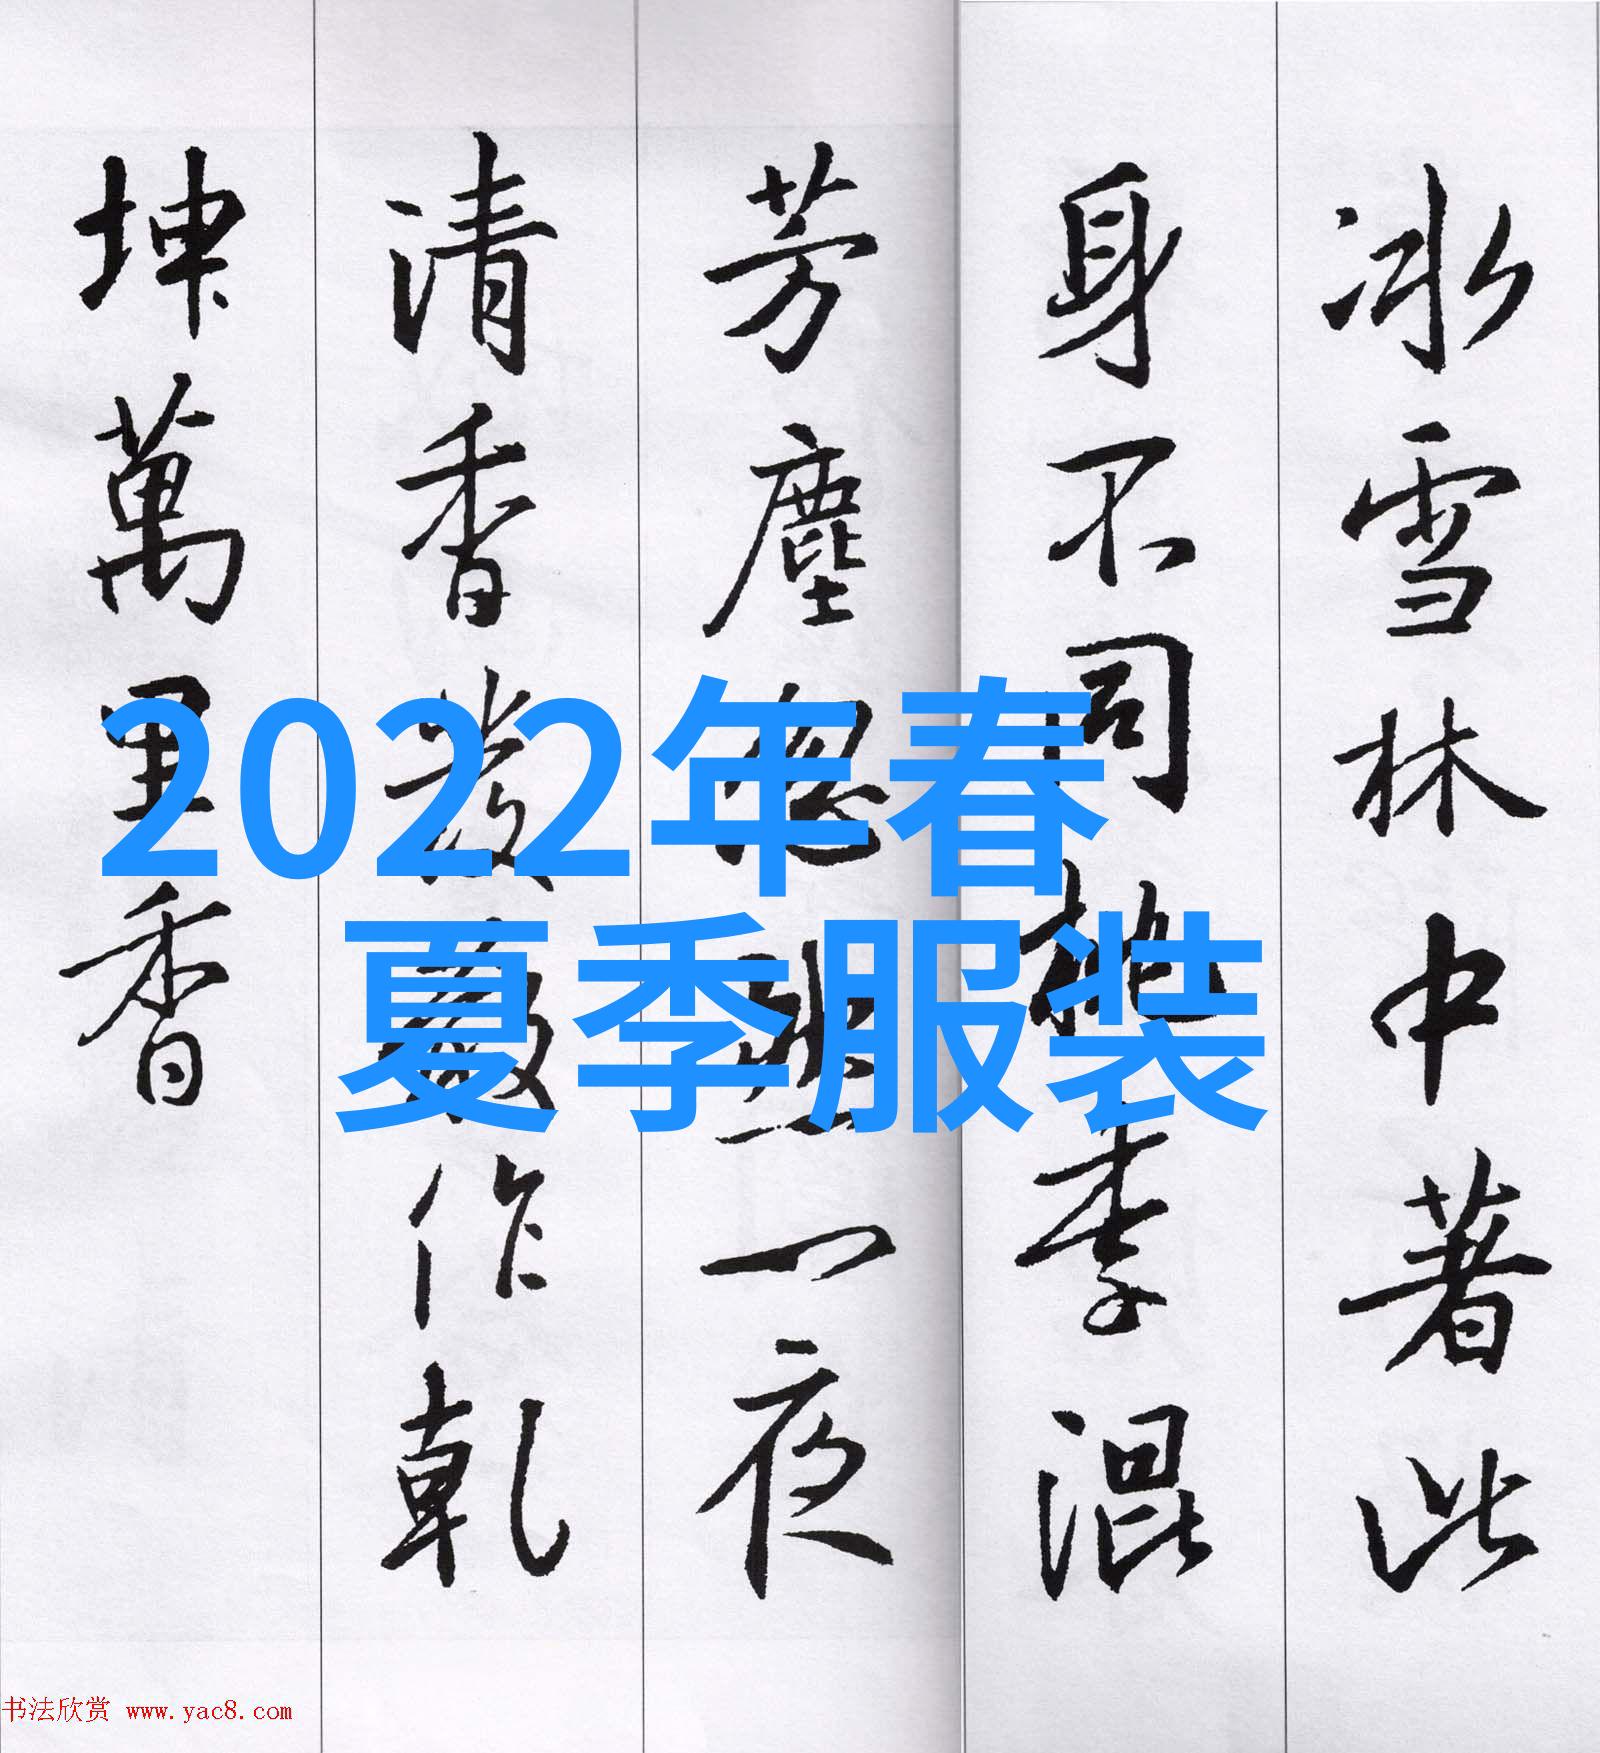 冰雪林中著此
身不同桃李混
芳塵忽然一夜
清香發散作乾
坤萬里香
2022年春
夏季服装
书法欣赏 www.yac8.com